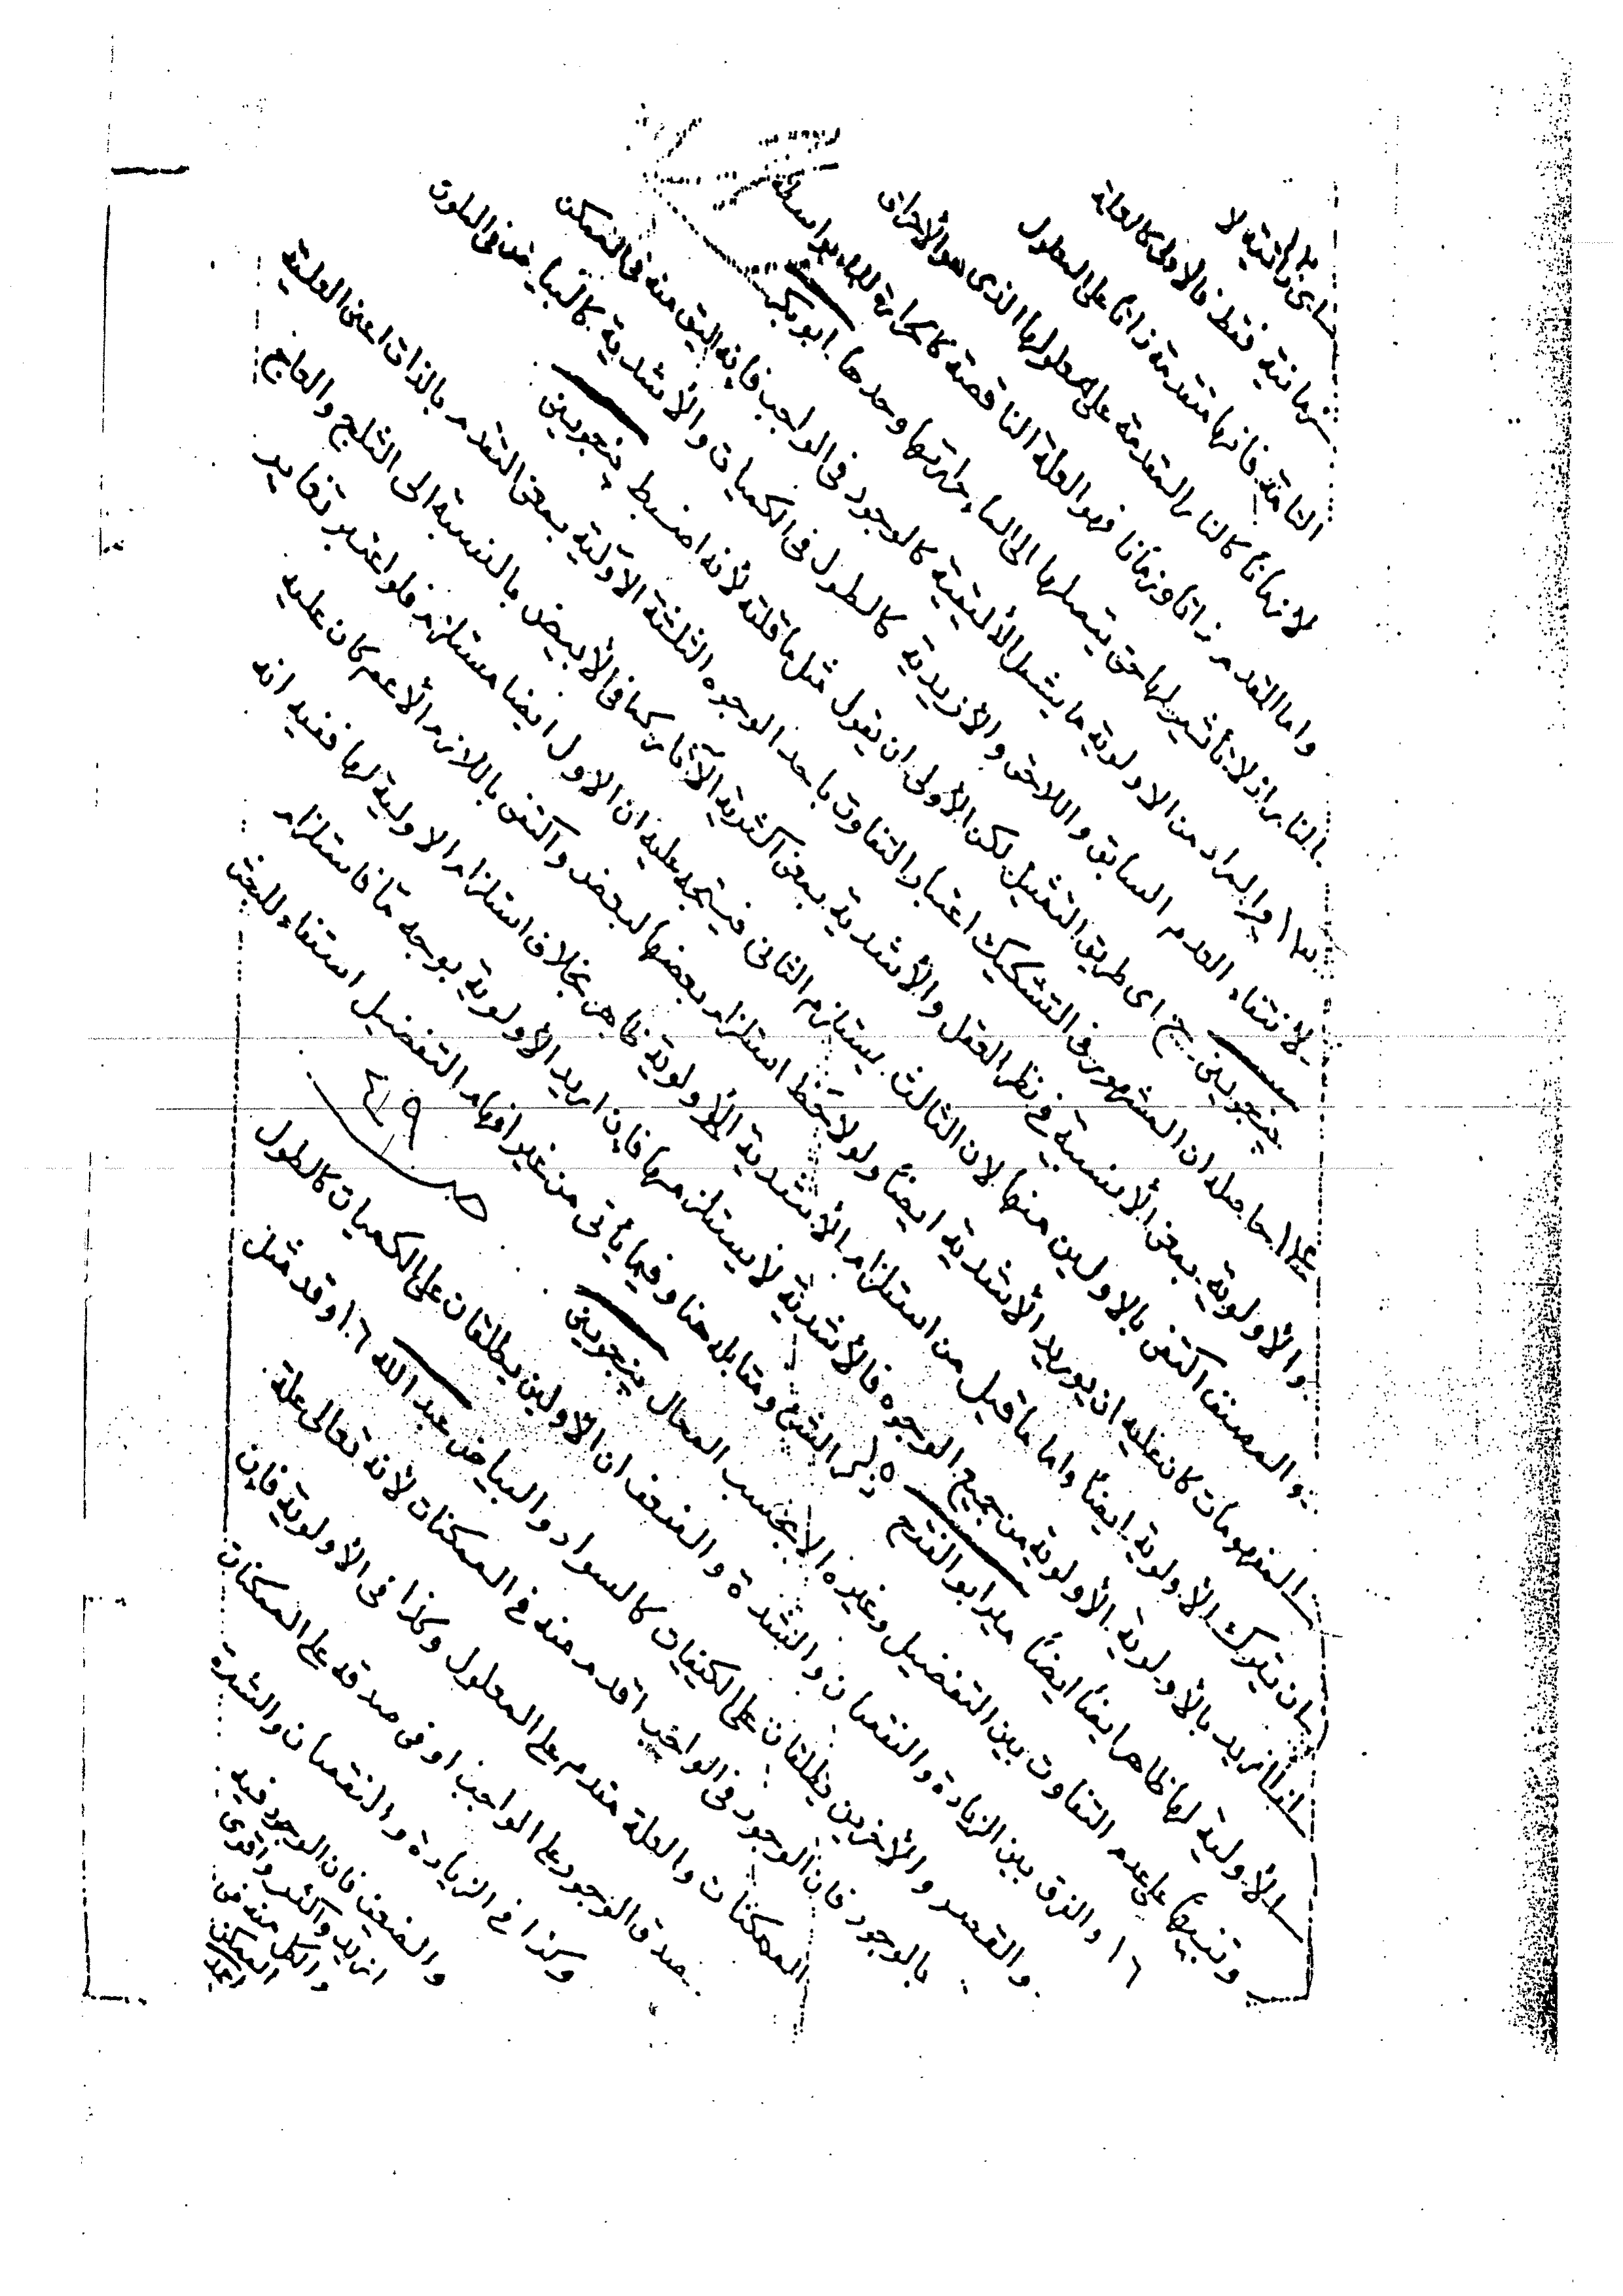 زمانية لا
زمانية فقط فالأولى كالعلة
التامة فانها متقدمة ذاتا على المعلول
لا زمانا كالنار المقدمة على معلولها الذى هو الأحراق
واما المتقدم ذاتا وزمانا فهو العلة الناقصة كالحرارة للماء بواسطة
النار اذ لا تأثير لها حتى الى الماء حرارتها وحدها ابوبكر
١٣ والمراد من الاولوية ما يشمل الأليقية كالوجود فى الواجب فإنه اليق منه فى الممكن
لانتفاء العدم السابق واللاحق والأزيدية كالطول فى الكميات والأشدية كالبياض فى الملون
پنجوينى ح اى طريق التمثيل لكن الأولى ان يقول مثل ما قلته لأنه اضبط پنجوينى
١٤ حاصله ان المشهور فى التشكيك اعتبار التفاوت باحد الوجوه الثلثة الاولية بمعنى التقدم بالذات اعنى العلية
والأولوية بمعنى الأنسبية فى نظر العقل والأشدية بمعنى اكثرية الآثار كما فى الأبيض بالنسبة الى الثلج والعاج
والمصنف اكتفى بالاولين منها لان الثالث يستلزم الثانى فيتجه عليه ان الاول ايضا مستلزم فلو اعتبر تغاير
المفهومات كان عليه ان يوريد الأشدية ايضا ولو لاحظ استلزام بعضها لبعض واكتفى باللازم الأعم كان عليه
بان يترك الأولوية ايضا واما ما قيل من استلزام الأشدية الأولوية ظاهر بخلاف استلزام الاولية لها ففيه انه
نريد بالأولوية الأولوية من جميع الوجوه فالأشدية لا يستلزمها فإن اريد الأولوية بوجه ما فاستلزام
الأولية لها ظاهر ايضا ايضا مير ابو الفتح ١٥ ذكر الشئ ومقابله هنا وفيما يأتى من غير افهام التفضيل استفاء للبحث
وتنبيها على عدم التفاوت بين التفضيل وغيره الا بحسب المحال پنجوينى
١٦ والفرق بين الزيادة والنقصان والشدة والضعف ان الأولين يطلقان على الكميات كالطول
والقصر والأخرين يطلقان على الكيفيات كالسواد والبياض عبد الله ١٦ وقد مثل
بالوجود فان الوجود فى الواجب اقدم منه فى الممكنات لأنه تعالى علة
الممكنات والعلة مقدم على المعلول وكذا فى الأولوية فإن
صدق الوجود على الواجب اوفى صدقه على الممكنات
وكذا فى الزيادة والنقصان والشدة
والضعف فان الوجود فيه
ازيد واكثر واقوى
والكل منه فى
الممكن
احمد